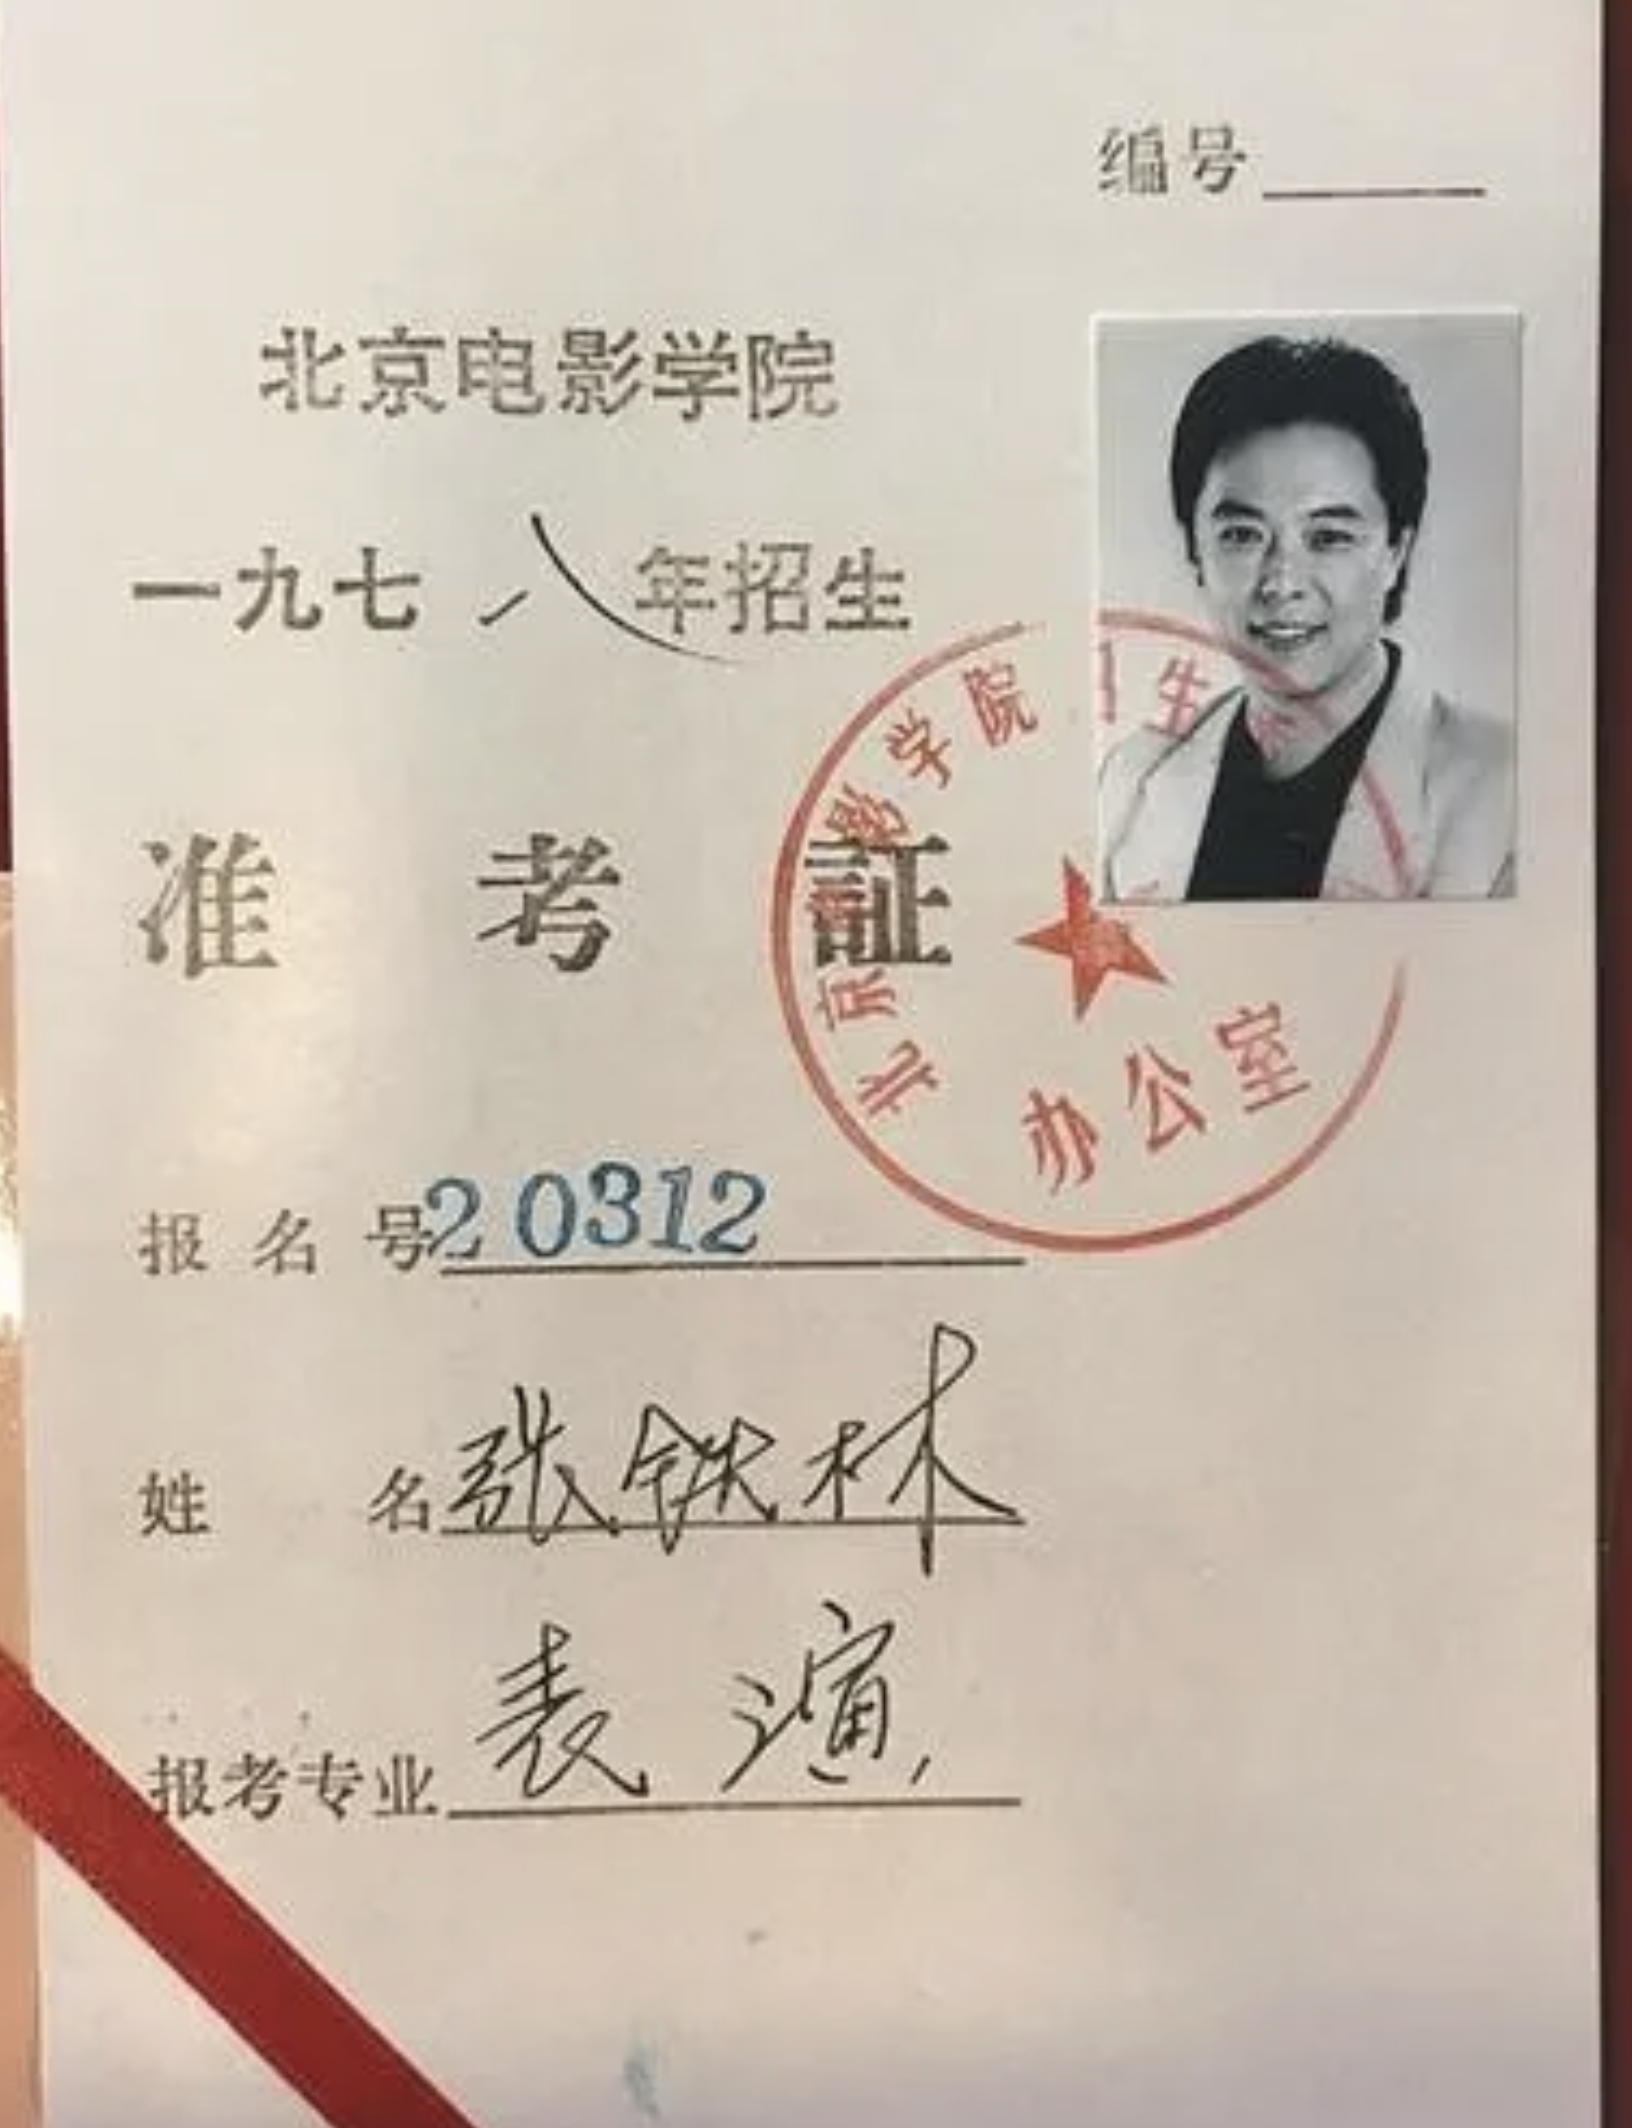 编号
北京电影学院
一九七八年招生
准考証
北京电影学院招生
办公室
报名号20312
姓名张铁林
报考专业表演